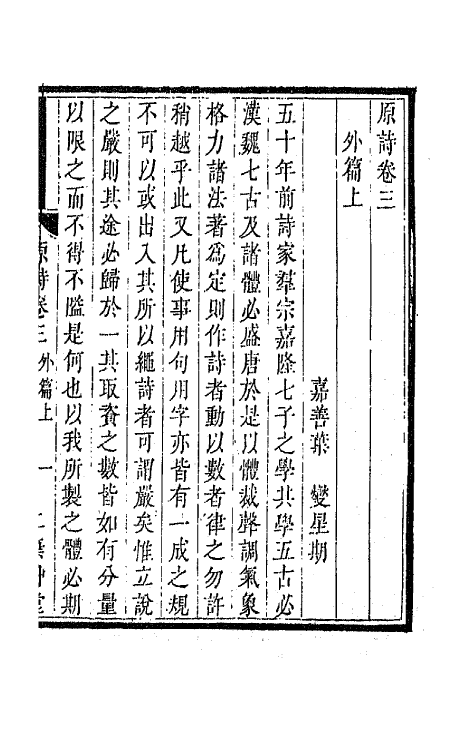 原詩卷三
外篇上
嘉善葉 燮星期
五十年前詩家羣宗嘉隆七子之學其學五古必
漢魏七古及諸體必盛唐於是以體裁聲調氣象
格力諸法著爲定則作詩者動以數者律之勿許
稍越乎此又凡使事用句用字亦皆有一成之規
不可以或出入其所以繩詩者可謂嚴矣惟立說
之嚴則其途必歸於一其取資之數皆如有分量
以限之而不得不隘是何也以我所製之體必期
原詩卷三 外篇上 一